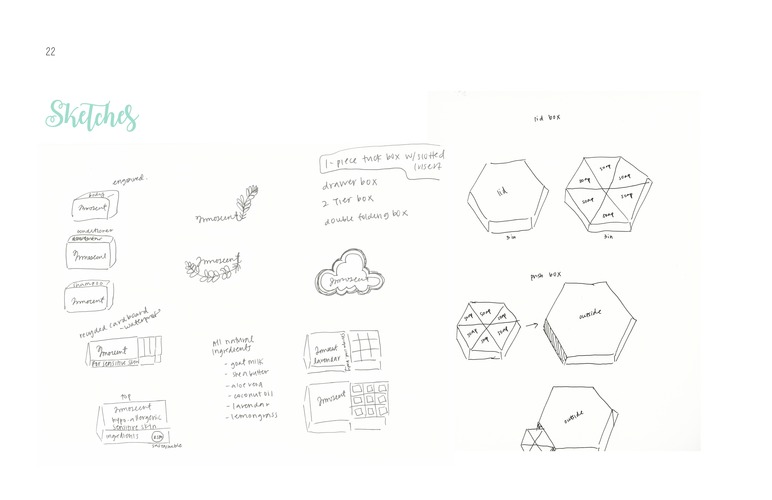 22
Sketches
engraved.
body
Innoscent
conditioner
Innoscent
shampoo
Innoscent
recycled cardboard
- waterproof
Innoscent
for sensitive skin
top
Innoscent
hypo-allergenic
sensitive skin
ingredients
Innoscent
Innoscent
All natural
ingredients
- goat milk
- shea butter
- aloe vera
- coconut oil
- lavendar
- lemongrass
1-piece tuck box w/slotted
insert
drawer box
2 Tier box
double folding box
Innoscent
Innoscent
lavendar
Innoscent
lid box
lid
3in
soap
soap
soap
soap
soap
soap
3in
push box
soap
soap
soap
soap
soap
soap
outside
outside